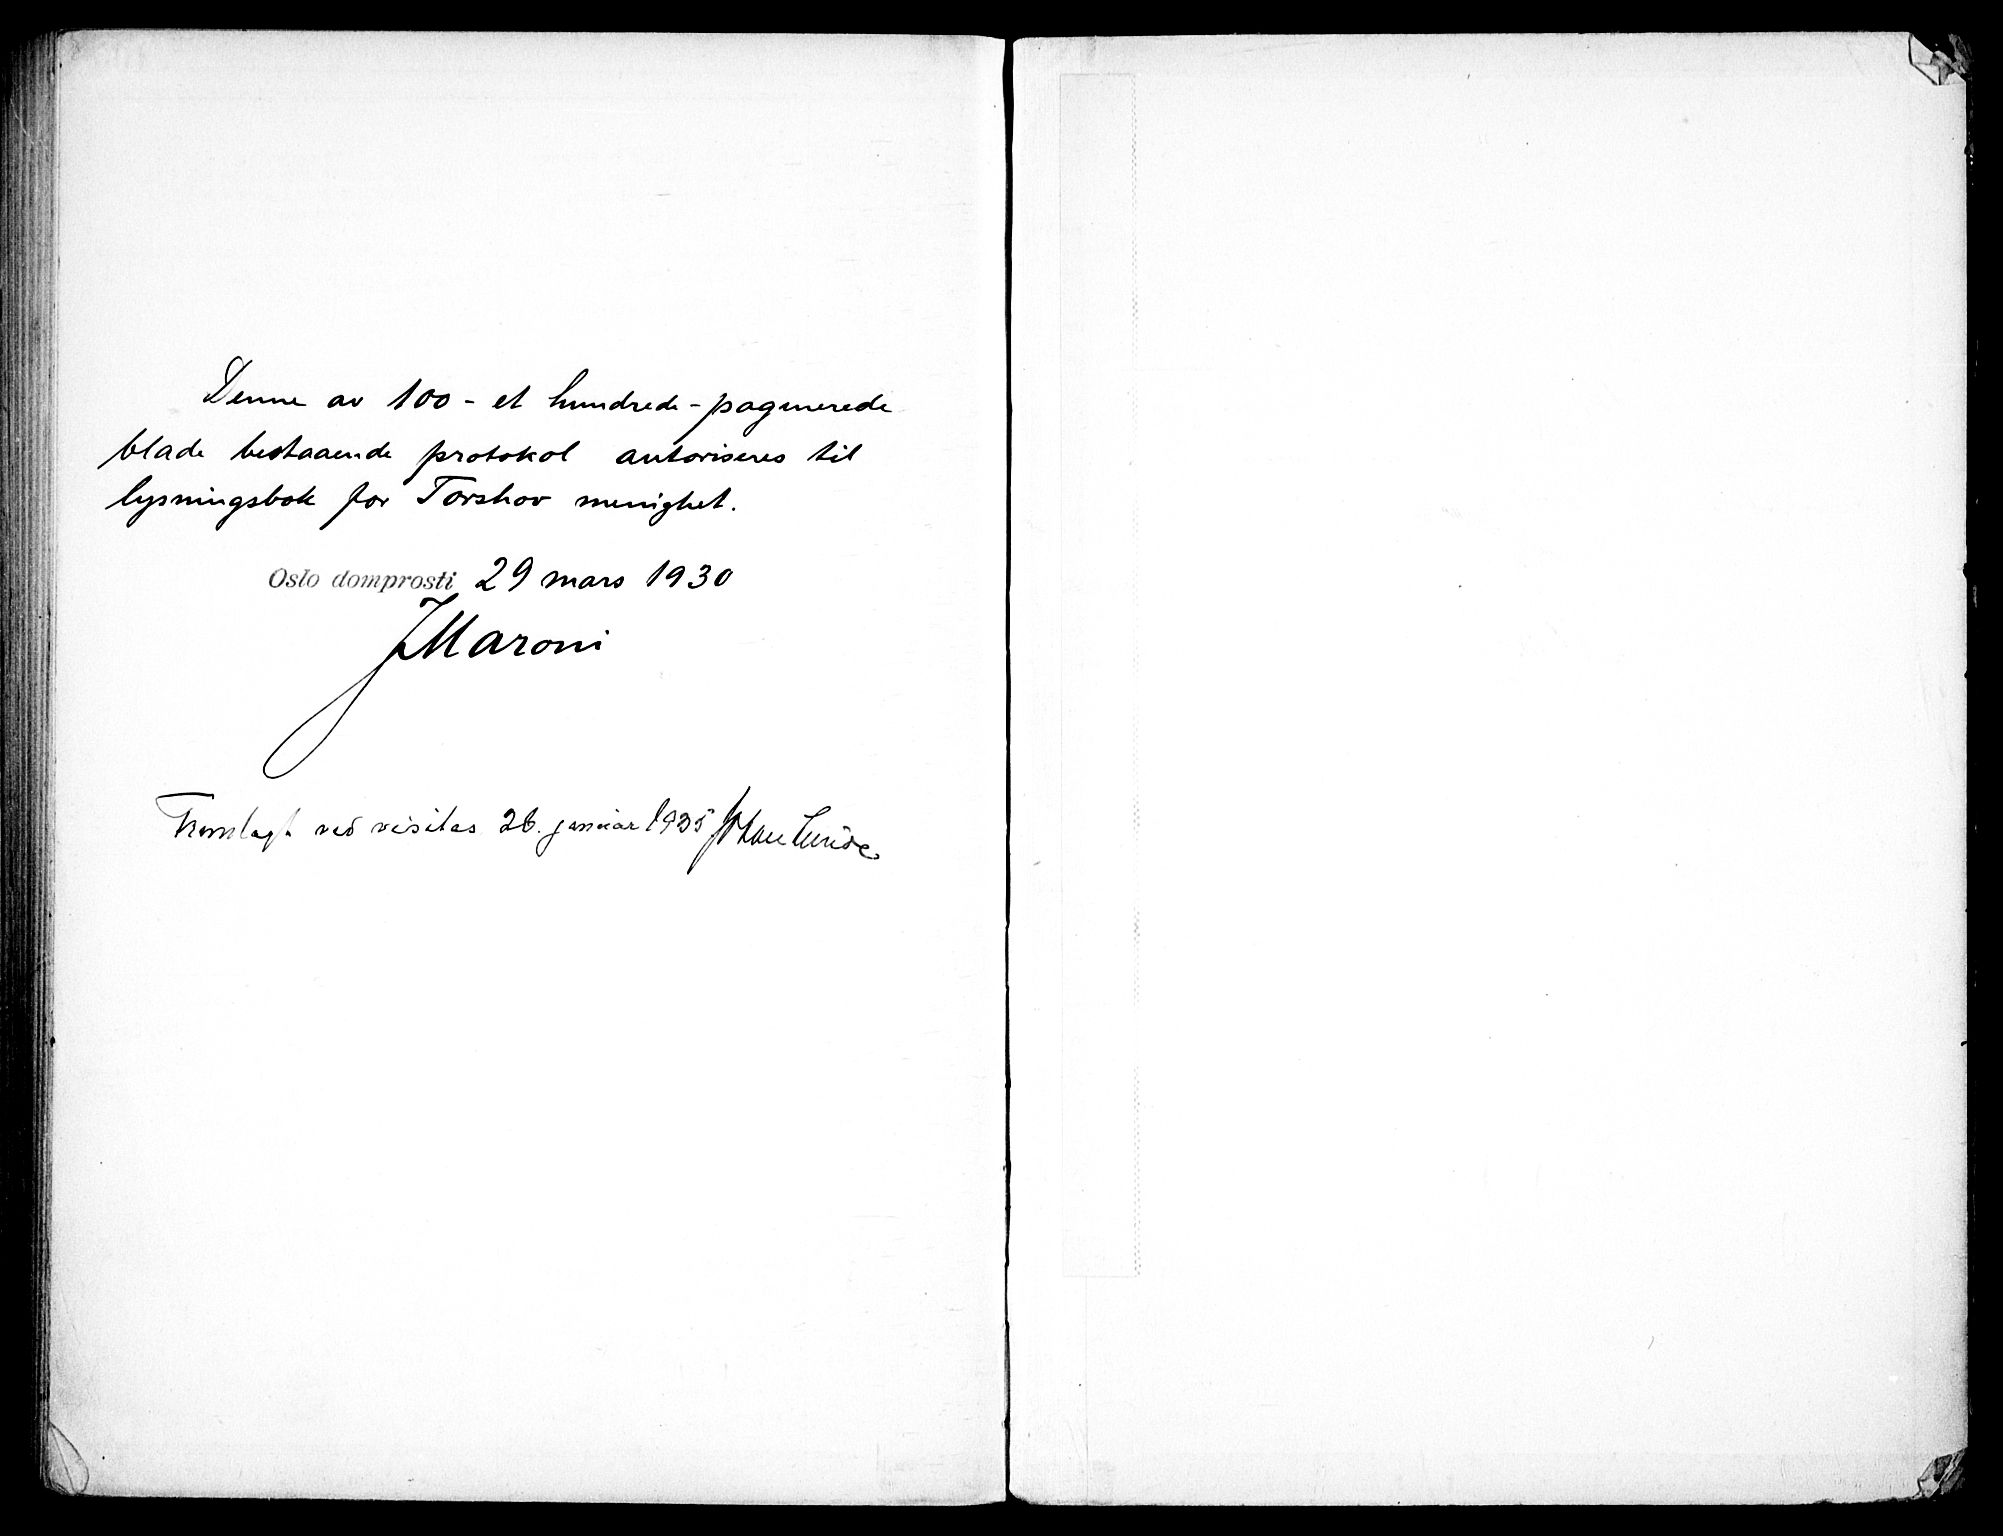 Denne av 100 - et hundrede - paginerede
blade bestaaende protokol autoriseres til
lysningsbok for Torshov menighet.
Oslo domprosti 29 mars 1930
JMaroni
Fremlagt ved visitas 26. januar 1935 Johan Lunde